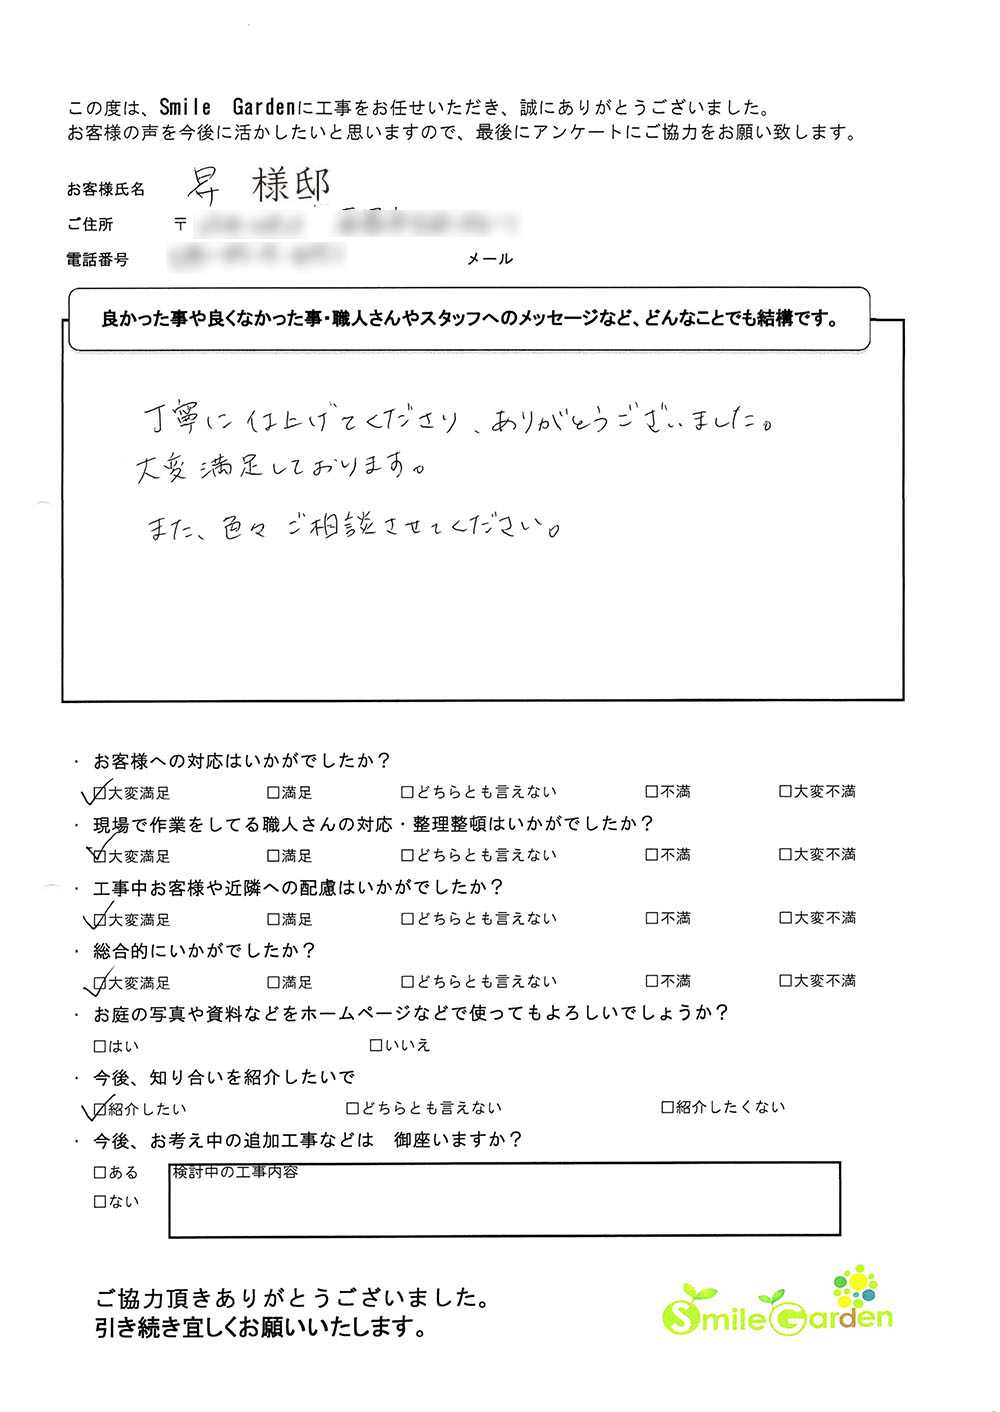 この度は、Smile Gardenに工事をお任せいただき、誠にありがとうございました。
お客様の声を今後に活かしたいと思いますので、最後にアンケートにご協力をお願い致します。
お客様氏名 昇 様邸
ご住所 〒
電話番号 メール
良かった事や良くなかった事・職人さんやスタッフへのメッセージなど、どんなことでも結構です。
丁寧に仕上げてくださり、ありがとうございました。
大変満足しております。
また、色々ご相談させてください。
・ お客様への対応はいかがでしたか？
☑大変満足 □満足 □どちらとも言えない □不満 □大変不満
・ 現場で作業をしてる職人さんの対応・整理整頓はいかがでしたか？
☑大変満足 □満足 □どちらとも言えない □不満 □大変不満
・ 工事中お客様や近隣への配慮はいかがでしたか？
☑大変満足 □満足 □どちらとも言えない □不満 □大変不満
・ 総合的にいかがでしたか？
☑大変満足 □満足 □どちらとも言えない □不満 □大変不満
・ お庭の写真や資料などをホームページなどで使ってもよろしいでしょうか？
□はい □いいえ
・ 今後、知り合いを紹介したいで
☑紹介したい □どちらとも言えない □紹介したくない
・ 今後、お考え中の追加工事などは 御座いますか？
□ある 検討中の工事内容
□ない
ご協力頂きありがとうございました。
引き続き宜しくお願いいたします。
Smile Garden